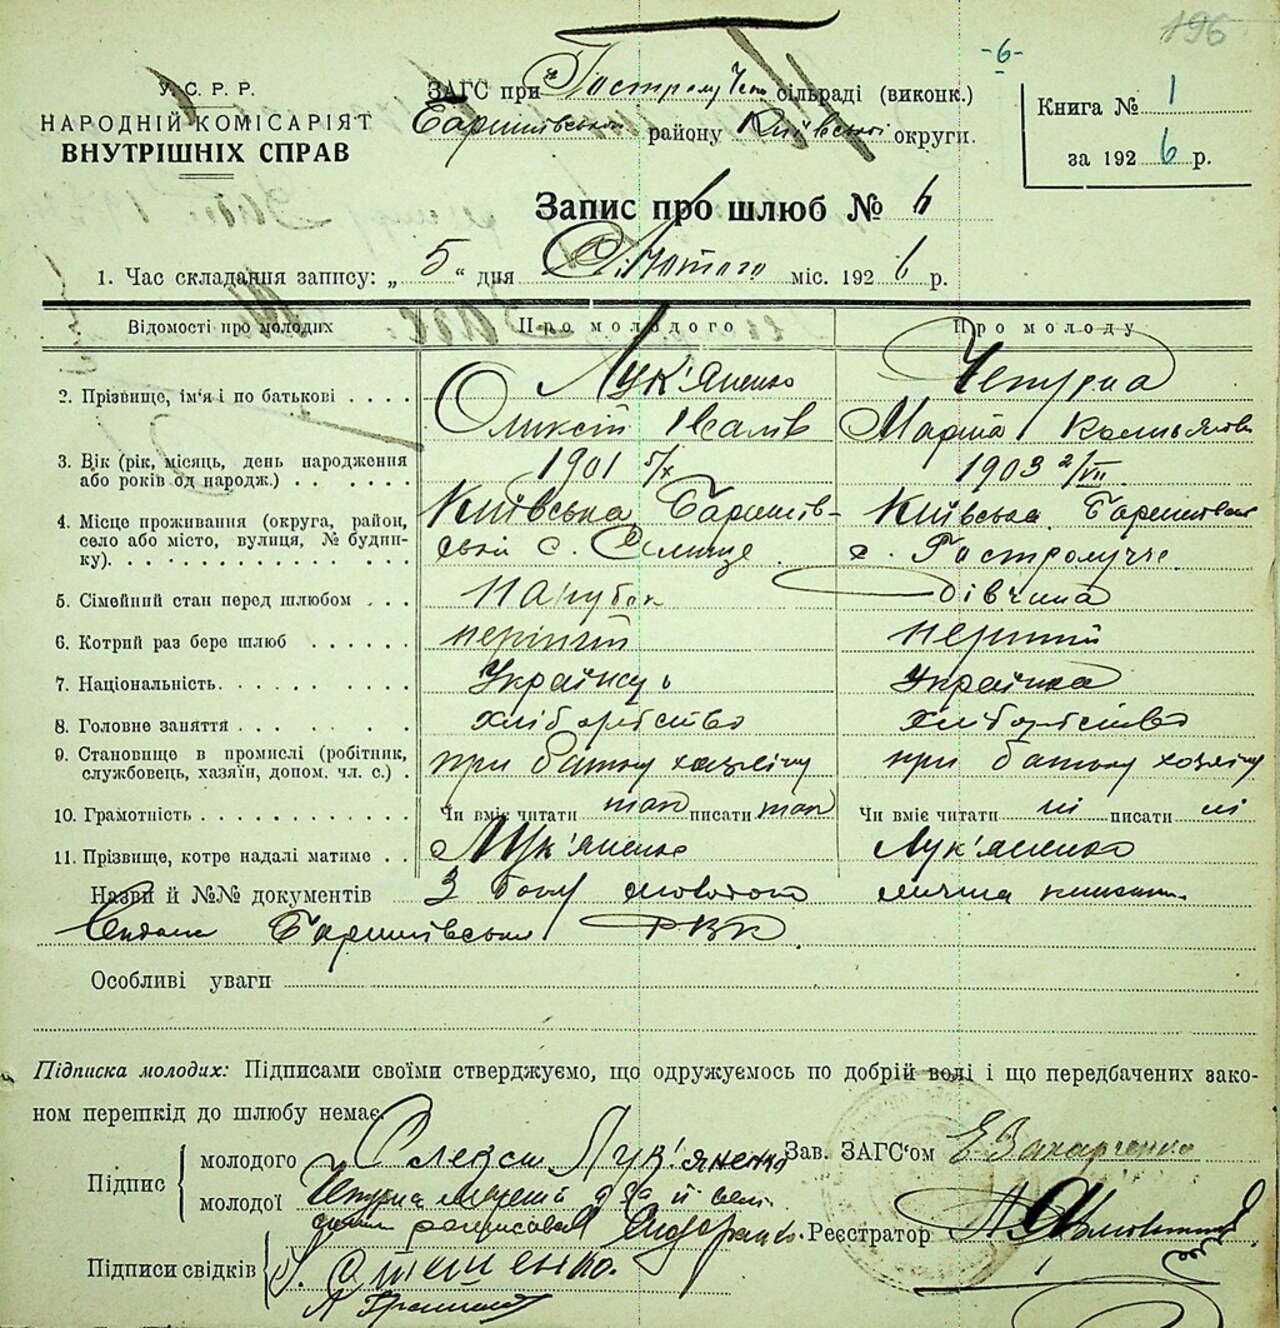 196
-6-
У. С. Р. Р.
НАРОДНІЙ КОМІСАРІЯТ
ВНУТРІШНІХ СПРАВ
ЗАГС при сільраді (виконк.)
Баришівському району Київської округи.
Книга № 1
за 1926 р.
Запис про шлюб № 6
1. Час складання запису: „ 5 “ дня Лютого міс. 1926 р.
Відомості про молодих Про молодого Про молоду
2. Прізвище, ім'я і по батькові . . . . Лук'яненко
Іванів Марія
3. Вік (рік, місяць, день народження 1901 5/X 1903 2/VII
або років од народж.) . . . . . .
4. Місце проживання (округа, район, Київська Баришів- Київська
село або місто, вулиця, № будин- ській с. Селище с. Гостролуччє
ку). . . . . . . . . . . . . . .
5. Сімейний стан перед шлюбом . . . парубок дівчина
6. Котрий раз бере шлюб . . . . . . первший перший
7. Національність. . . . . . . . . . Українець Українка
8. Головне заняття . . . . . . . . . хліборобство хліборобство
9. Становище в промислі (робітник, при батьку хазяїну при батьку хозяїну
службовець, хазяїн, допом. чл. с.) .
10. Грамотність . . . . . . . . . . . Чи вміє читати так писати так Чи вміє читати ні писати ні
11. Прізвище, котре надалі матиме . . Лук'яненко Лук'яненко
Назви й №№ документів З боку молодого
Баришівським РВК.
Особливі уваги
Підписка молодих: Підписами своїми стверджуємо, що одружуємось по добрій волі і що передбачених зако-
ном перешкід до шлюбу немає.
Підпис
молодого Лук'яненко
молодої
Зав. ЗАГС'ом Е. Захарченко
Реєстратор
Підписи свідків